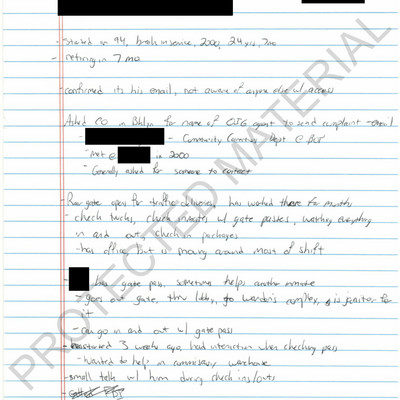 - Started in 94, break in service, 2000, 24 yrs, 7mo
- retiring in 7 mo
- confirmed its his email, not aware of anyone else w/ access
Asked CO in Bklyn for name of agent to send complaint - email
- Community Corrections Dept @
- met @ in 2000
- Generally asked for someone to contact
- Rear gate open for traffic deliveries, has worked there for months
- check trucks, check inmates w/ gate passes, watching everything
in and out, check in packages
- has office, but is moving around most of shift
- has gate pass, sometimes helps another inmate
- goes out gate, thru lobby, to warden's complex, is janitor for
it
- can go in and out w/ gate pass
- 3 weeks ago, had interaction when checking pass
- wanted to help in commissary warehouse
- small talk w/ him during check ins/outs
PROTECTED MATERIAL